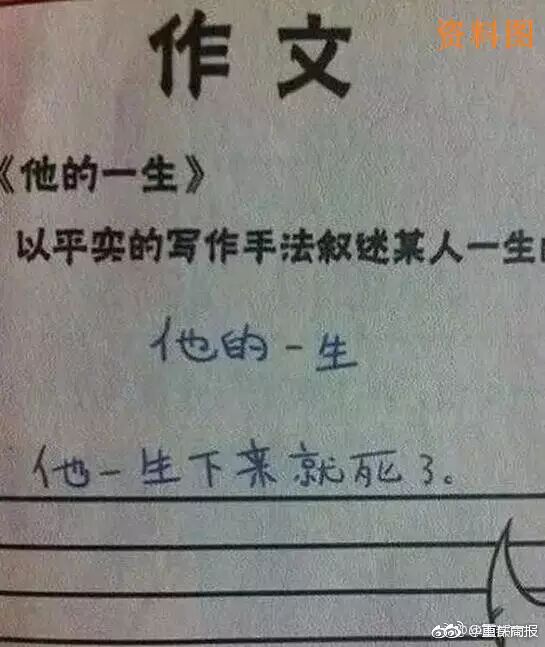 资料图
作文
《他的一生》
以平实的写作手法叙述某人一生
他的一生
他一生下来就死了。
@重庆商报